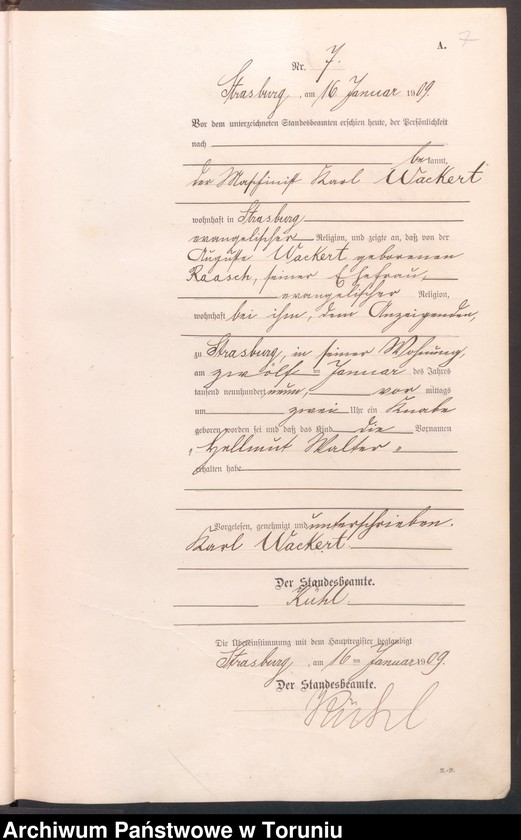 A. 7
Nr. 7.
Strasburg, am 16 Januar 1909.
Vor dem unterzeichneten Standesbeamten erschien heute, der Persönlichkeit
nach
bekannt,
der Maschinist Karl Wackert
wohnhaft in Strasburg
evangelischer Religion, und zeigte an, daß von der
Auguste Wackert geborenen
Raasch, seiner Ehefrau,
evangelischer Religion,
wohnhaft bei ihm, dem Anzeigenden,
zu Strasburg, in seiner Wohnung,
am zwölften Januar des Jahres
tausend neunhundert neun, vor mittags
um zwei Uhr ein Knabe
geboren worden sei und daß das Kind die Vornamen
„Hellmut Walter"
erhalten habe
Vorgelesen, genehmigt und unterschrieben.
Karl Wackert
Der Standesbeamte.
Kühl
Die Übereinstimmung mit dem Hauptregister beglaubigt
Strasburg, am 16 ten Januar 1909.
Der Standesbeamte.
Kühl
Archiwum Państwowe w Toruniu